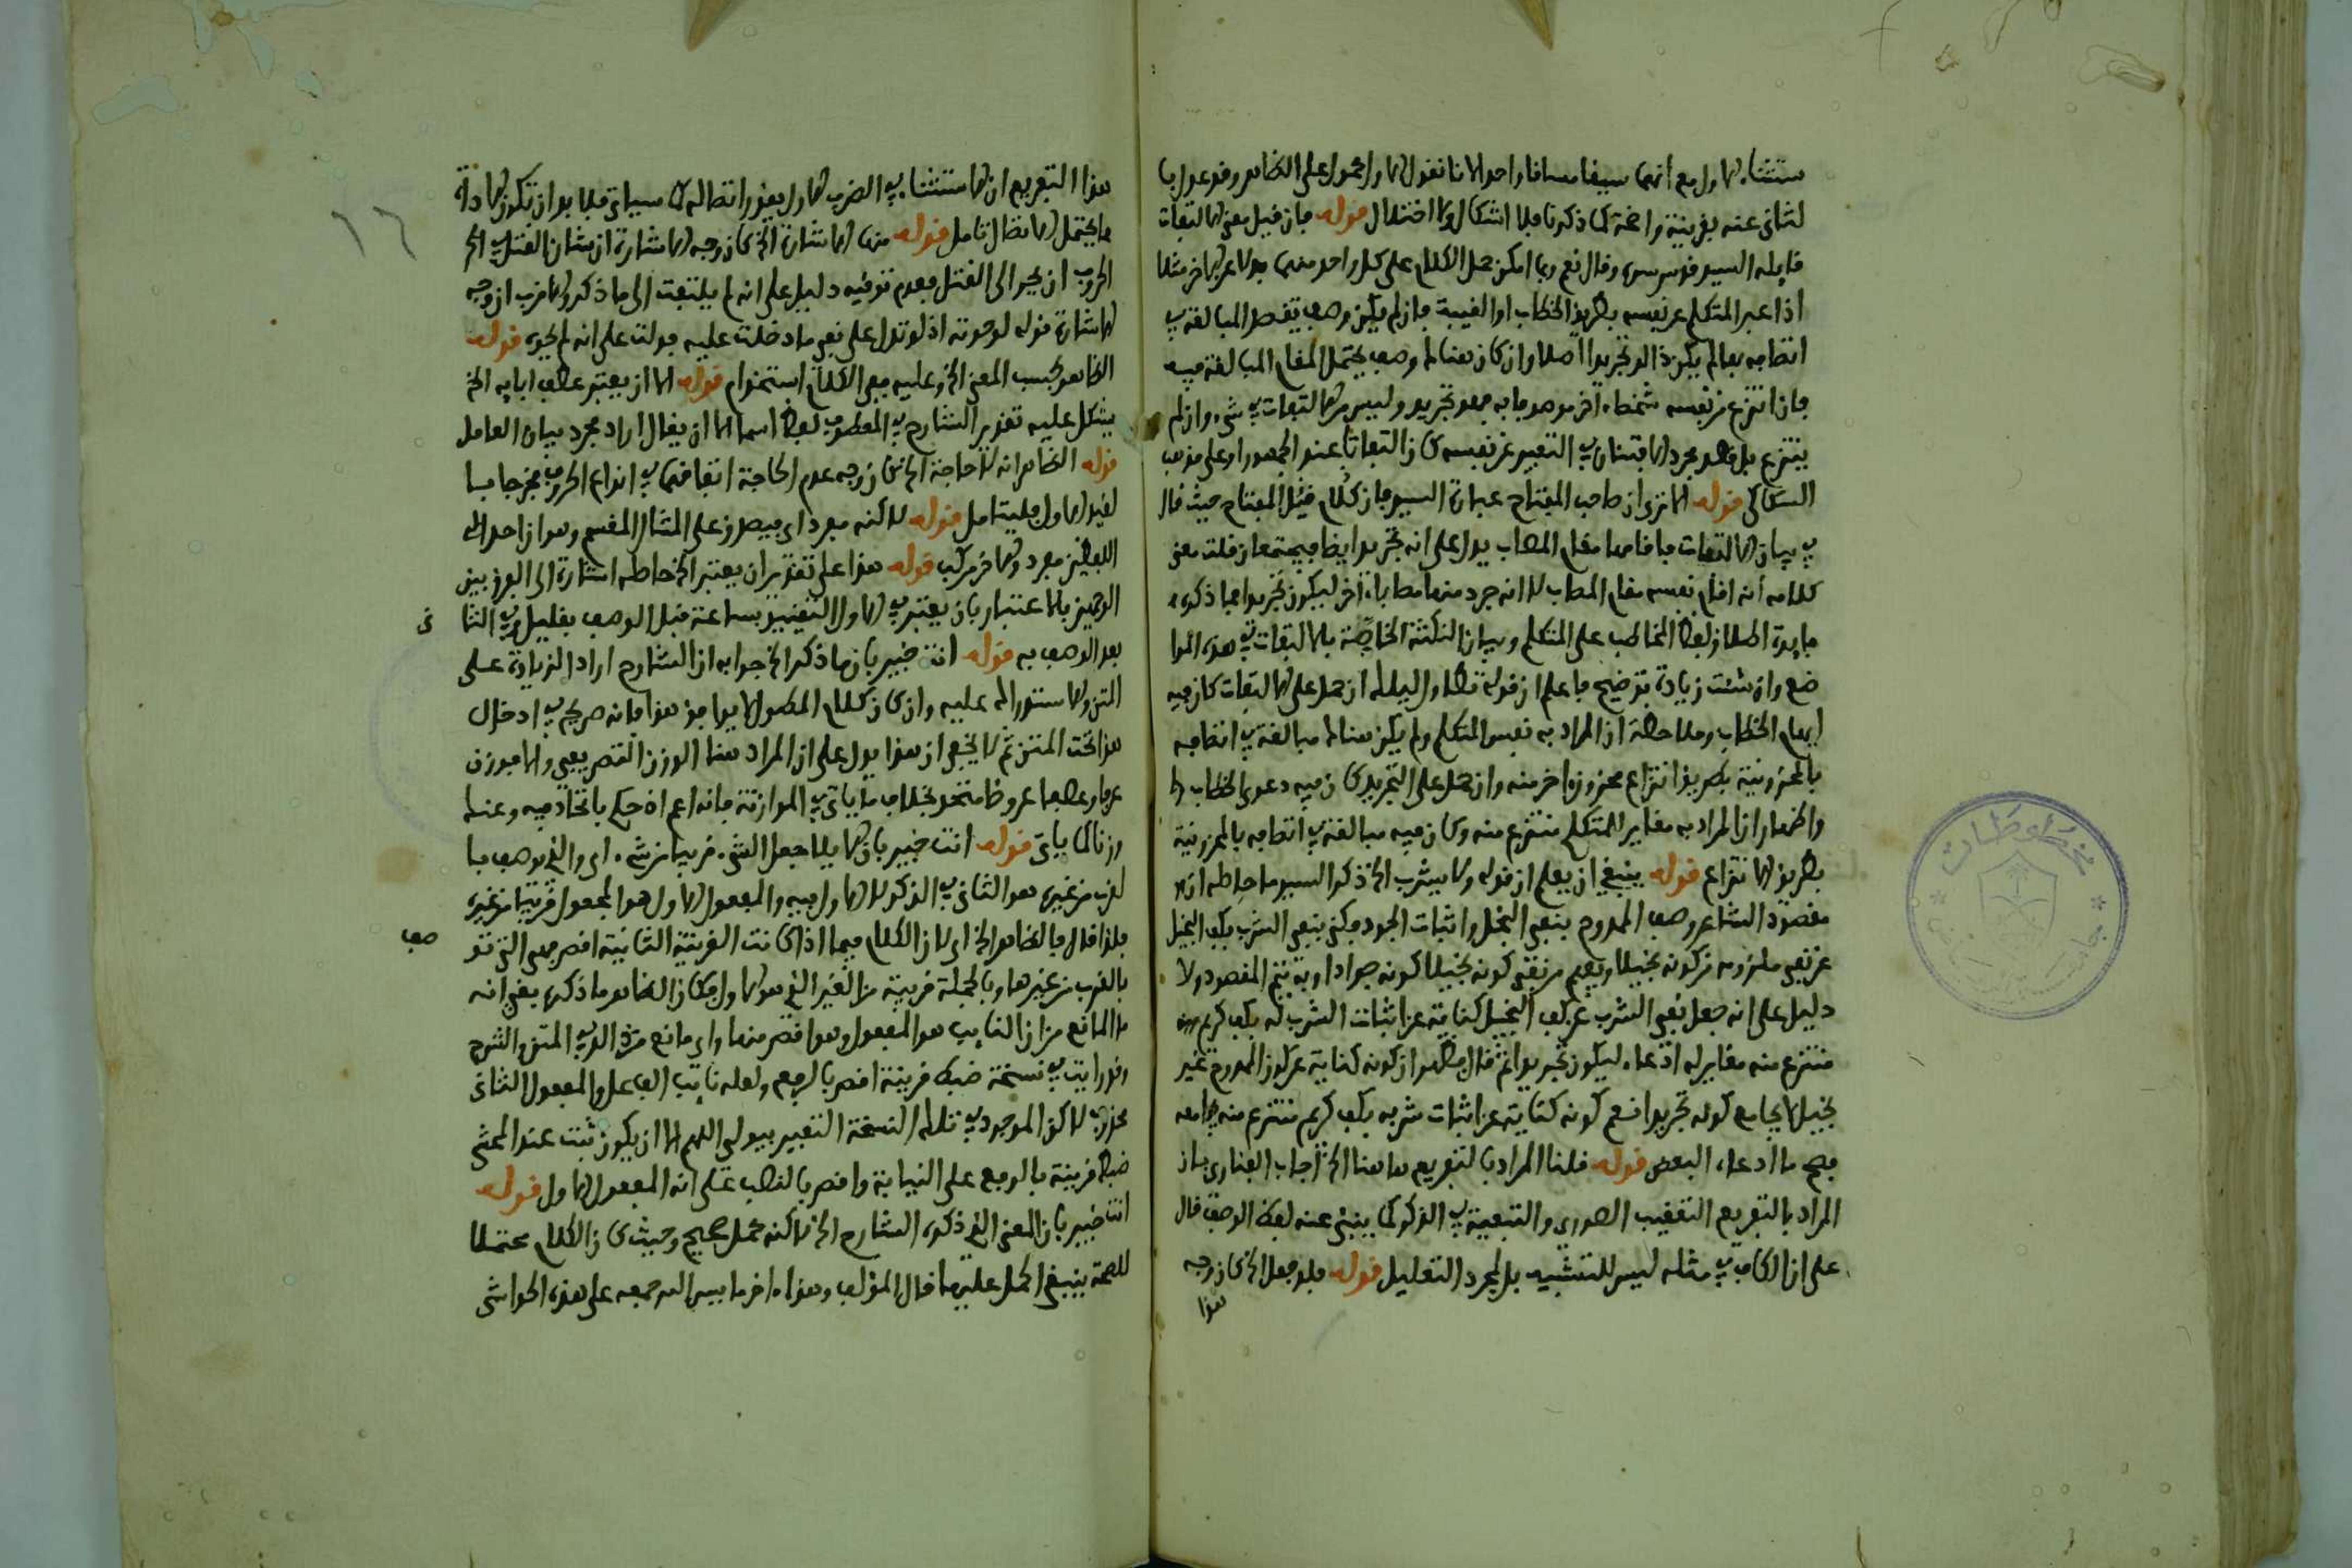 ستثناء الاول مع انهما سيقا مساقا واحدا لانا نقول الاول محمول على الظاهر وقد عدل بـا
لثانى عنه بقرينة واضحة كما ذكرنا فلا اشكال ولا اختلال قوله فان قيل معنى الالتفات
قايله السيد قدس سره وقال نعم ربما امكن حمل الكلام على كل واحد منهما بدلا عن الاخر مثلا
اذا عبر المتكلم عن نفسه بطريق الخطاب او الغيبة فان لم يكن وصف يقصد المبالغة في
اتصافه به لم يكن ذلك تجريدا اصلا وان كان هناك وصف يحتمل المقام المبالغة فيه
فان انتزع من نفسه شخصا ءاخر موصوفا به فهو تجريد وليس من الالتفات في شىء وان لم
ينتزع بل قصد مجرد الافتنان في التعبير عن نفسه كان التفاتا عند الجمهور او على مذهب
السكاكى قوله الا ترى ان صاحب المفتاح عبارة السيد فان كلام المفتاح حيث قال
في بيان الالتفات فاقامها مقام المصاب يدل على انه تجريد ايضا فيجتمعان قلت معنى
كلامه انه اقام نفسه مقام المصاب لا انه جرد منها مصابا ءاخر ليكون تجريدا فما ذكره
فايدة اطلاق لفظ المخاطب على المتكلم وبيان النكتة الخاصة بالالتفات في هذه الموا
ضع وان شئت زيادة توضيح فاعلم ان قوله تطاول ليلك ان حمل على الالتفات كان فيه
ايهام الخطاب وملاحظة ان المراد به نفس المتكلم ولم يكن هناك مبالغة في اتصافه
بالمحزونية بطريق انتزاع محزون ءاخر منه وان حمل على التجريد كان فيه دعوى الخطاب
واظهار ان المراد به مغاير للمتكلم منتزع منه وكان فيه مبالغة في اتصافه بالمحزونية
بطريق الانتزاع قوله ينبغى ان يعلم ان قوله ولا يشرب الخ ذكر السيد ما حاصله ان
مقصود الشاعر وصف الممدوح بنفى البخل واثبات الجود فكنى بنفى الشرب بكف البخيل
عن نفى ملزومه من كونه بخيلا ويفهم من نفى كونه بخيلا كونه جوادا وبه تم المقصود ولا
دليل على انه جعل نفى الشرب عن كف البخيل كناية عن اثبات الشرب له بكف كريم
منتزع منه مغاير له ادعاء ليكون تجريدا ثم قال فظهر ان كونه كناية عن كون الممدوح غير
بخيل لا يجامع كونه تجريدا نعم كونه كناية عن اثبات شربه بكف كريم منتزع منه يجامعه
فصح ما ادعاه البعض قوله قلنا المراد بالتفريع هاهنا الخ اجاب الفنارى بان
المراد بالتفريع التعقيب الصورى والتبعية في الذكر كما ينبئ عنه لفظ الوصف قال
على ان الكاف في مثله ليس للتشبيه بل لمجرد التعليل قوله فلو جعل الخ كان وجه
هذا
١٦
هذا التفريع ان الاستثناء في الضرب الاول يقدر اتصاله كما سياتى فلا بد ان تكون الاداة
مما يحتمل الاتصال تامل قوله منها الاشارة الخ كان وجه الاشارة ان شان القتل في
الحروب ان يجر الى القتل فعدم توقيه دليل على انه لم يلتفت الى ما ذكر والاقرب ان وجه
الاشارة قوله لو حويته اذ لو تدل على نفى ما دخلت عليه فدلت على انه لم يحوه قوله
الظاهر بحسب المعنى الخ وعليه ففى الكلام استخدام قوله الا ان يعتبر عطف اباية الخ
يشكل عليه تقدير الشارح في المعطوف لفظ اسما الا ان يقال اراد مجرد بيان العامل
قوله الظاهر انه لا حاجة الخ كان وجه عدم الحاجة اتفاقهما في انواع الحروف بما
لقيد الاول فليتامل قوله لاكنه مفرد اى فيصدق على المثال القسم وهو ان احد
اللفظين مفرد والاخر مركب قوله هذا على تقدير ان يعتبر الخ حاصله اشارة الى الفرق بين
الوجهين بالاعتبار بان يعتبر في الاول التقييد بساعة قبل الوصف بقليل وفي الثا نى
بعد الوصف به قوله انت خبير بان ما ذكر الخ جوابه ان الشارح اراد الزيادة على
المتن والاستدراك عليه وان كان كلام المطول لا يوافق هذا فانه صريح في ادخال
هذا تحت المتن ثم لا يخفى ان هذا يدل على ان المراد هنا الوزن التصريفى والا فوزن
عرضا متحد بخلاف ما ياتى في الموازنة فانه اعم اذ حكم باتحاد فيه وعند
وزنا كما ياتى قوله انت خبير بان الايلا جعل الشىء قريبا من شىء اى والذى يوصف بـا
لقرب من غيره هو الثانى في الذكر لا الاول فيه والمفعول الاول هو المجعول قريبا من غيره
فلذا قال فالظاهر الخ اى لان الكلام فيما اذا كانت القرينة الثانية اقصر فهى التى تو صف
بالقرب من غيرها وبالجملة قريبة من الغير الذى هو الاول فكان الظاهر ما ذكره يعنى انه
ما المانع من ان النايب هو المفعول وهو اقصر منها واى مانع من المتن والشرح
وقد رايت في نسخة ضبط قرينة اقصر بالرفع ولعله نايب الفاعل والمفعول الثانى
محذوف لاكن الموجود في تلك النسخة التعبير بيولى اللهم الا ان يكون ثبت عند المحشى
ضبط قرينة بالرفع على النيابة واقصر بالنصب على انه المفعول الاول قوله
انت خبير بان المعنى الذى ذكره الشارح الخ لاكنه محمل صحيح وحيث كان الكلام محتملا
للصحة ينبغى الحمل عليها قال المؤلف وهذا ءاخر ما يسر الله جمعه على هذه الحواشى